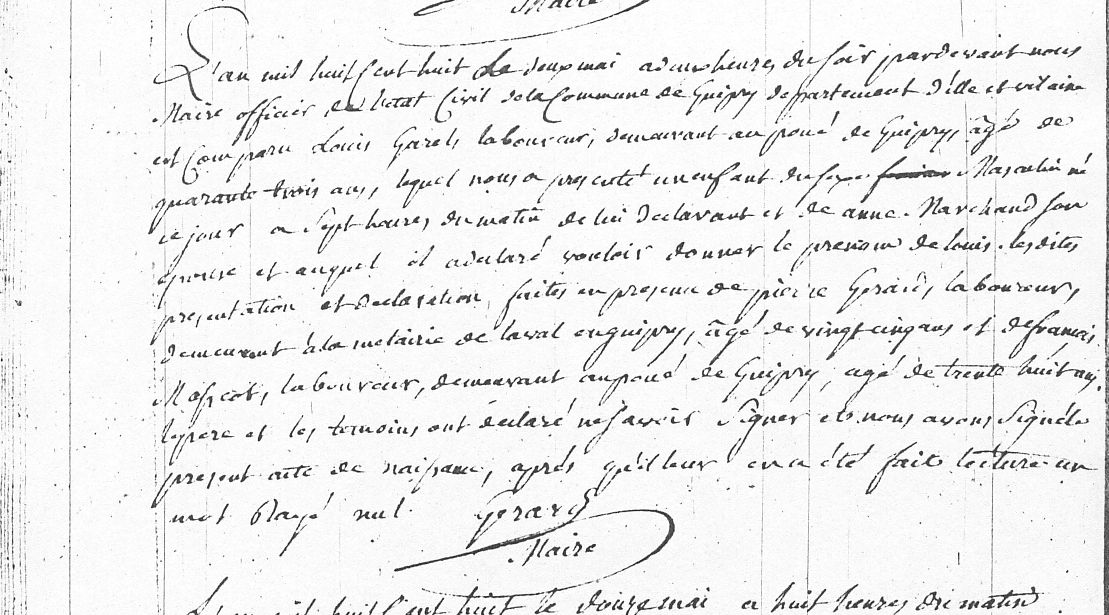 Maire
L'an mil huit cent huit le deux mai a deux heures du soir, pardevant nous
Maire officier de l'etat Civil de la Commune de Guipry departement d'ille et vilaine
est Comparu Louis Garel, laboureur, demeurant au poué de Guipry, âgé de
quarante trois ans, lequel nous a presenté un enfant du sexe Masculin né
ce jour a Sept heures du matin de lui declarant et de anne Marchand son
epouse et auquel il a declaré vouloir donner le prenom de louis. les dites
presentation et declaration, faites en presence de pierre Gerard, laboureur,
demeurant à la metairie de laval en guipry, âgé de vingt cinq ans et de francois
laboureur, demeurant au poué de Guipry, agé de trente huit ans.
le pere et les temoins ont déclaré ne savoir Signer et nous avons Signé le
present acte de naissance, après qu'il leur en a été fait lecture un
mot Rayé nul. Gerard
Maire
L'an mil huit Cent huit le douze mai a huit heures du matin